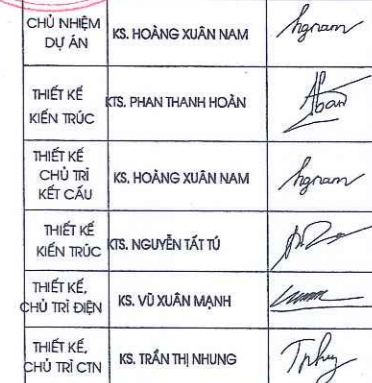 CHỦ NHIỆM
DỰ ÁN
KS. HOÀNG XUÂN NAM
hgnam
THIẾT KẾ
KIẾN TRÚC
KTS. PHAN THANH HOÀN
THIẾT KẾ
CHỦ TRÌ
KẾT CẤU
KS. HOÀNG XUÂN NAM
hgnam
THIẾT KẾ
KIẾN TRÚC
KTS. NGUYỄN TẤT TÚ
THIẾT KẾ,
CHỦ TRÌ ĐIỆN
KS. VŨ XUÂN MẠNH
THIẾT KẾ,
CHỦ TRÌ CTN
KS. TRẦN THỊ NHUNG